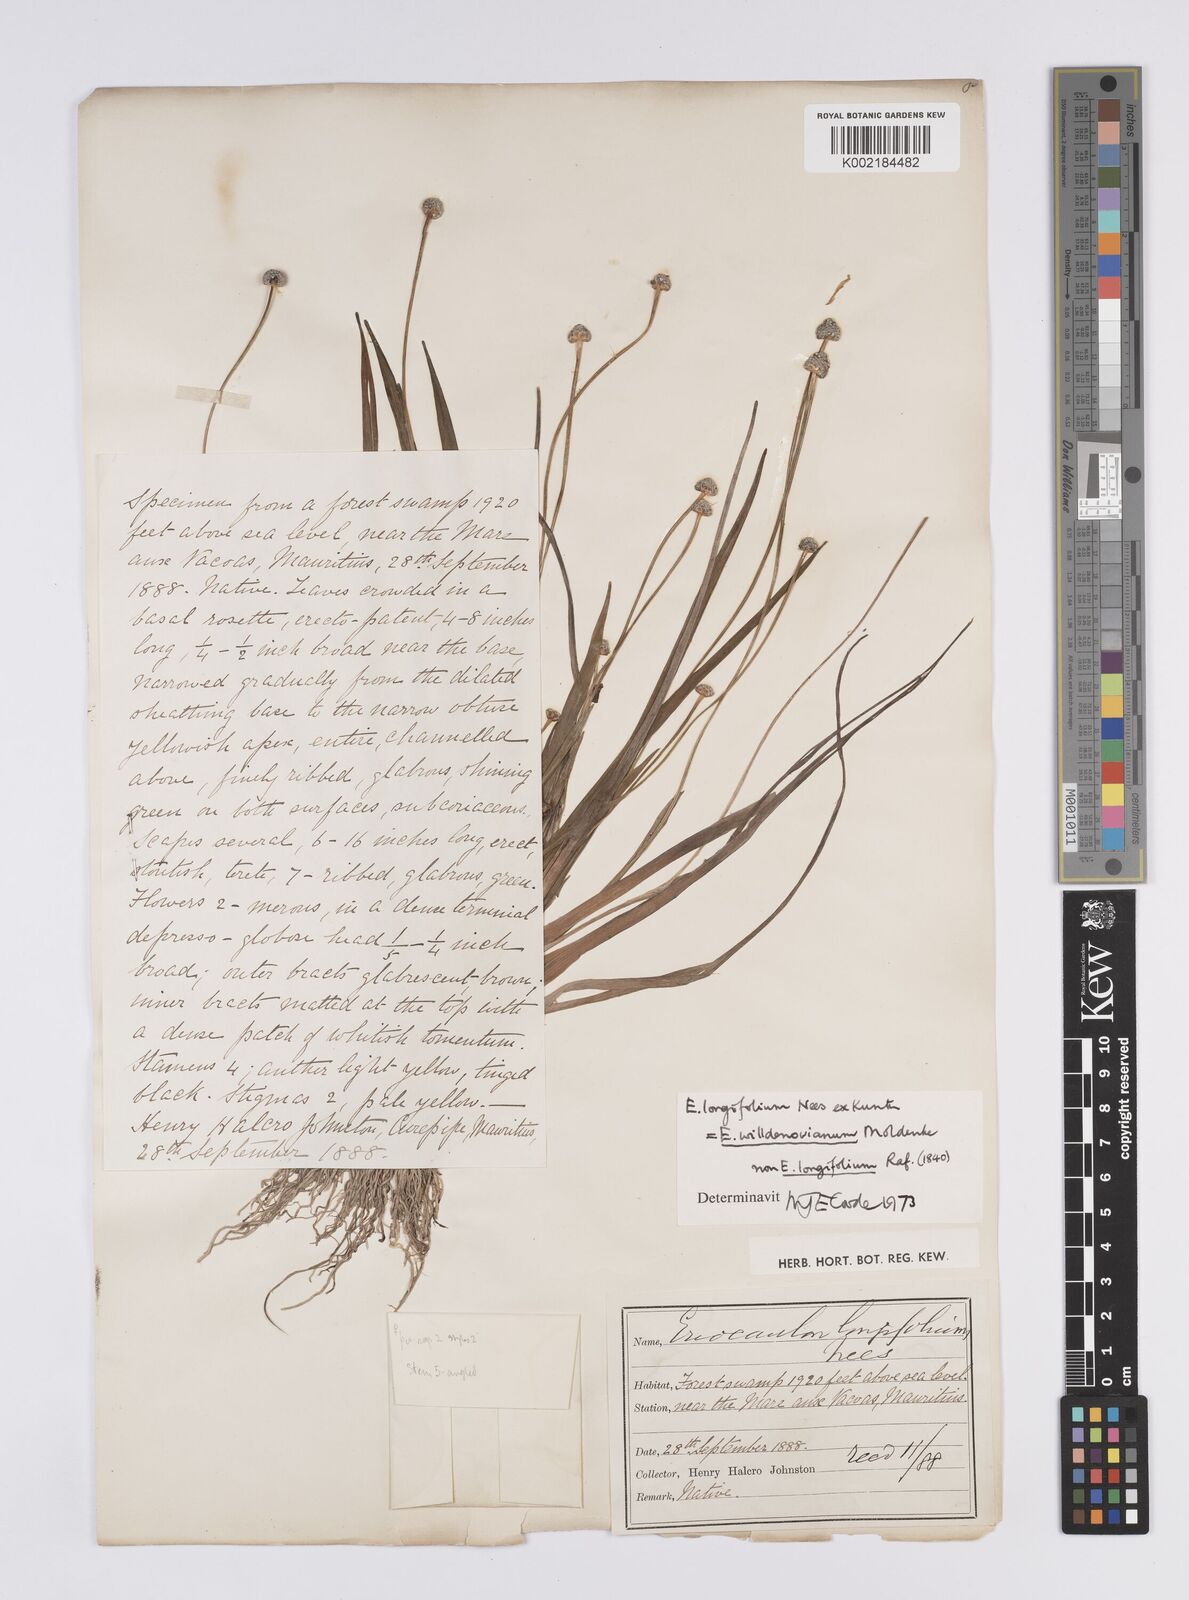 ROYAL BOTANIC GARDENS KEW
K002184482
Specimen from a forest swamp 1920
feet above sea level, near the Mare
aux Vacoas, Mauritius, 28th September
1888. Native. Leaves crowded in a
basal rosette, erecto-patent, 4-8 inches
long, 1/4 - 1/2 inch broad near the base,
narrowed gradually from the dilated
sheathing base to the narrow obtuse
yellowish apex, entire, channelled
above, finely ribbed, glabrous, shining
green on both surfaces, subcoriaceous.
Scapes several, 6-16 inches long, erect,
stoutish, terete, 7-ribbed, glabrous, green.
Flowers 2-merous, in a dense terminal
depresso-globose head 1/5 - 1/4 inch
broad; outer bracts glabrescent, brown;
inner bracts matted at the top with
a dense patch of whitish tomentum.
Stamens 4; anther light yellow, tinged
black. Stigmas 2, pale yellow.—
Henry Halcro Johnston, Curepipe, Mauritius,
28th September 1888.
E. longifolium Nees ex Kunth
= E. willdenovianum Moldenke
non E. longifolium Raf. (1840)
Determinavit MJE Coode 1973
HERB. HORT. BOT. REG. KEW.
Name, Eriocaulon longifolium,
Nees
Habitat, Forest swamp 1920 feet above sea level.
Station, near the Mare aux Vacoas, Mauritius.
Date, 28th September 1888.
Collector, Henry Halcro Johnston
recd 11/88
Remark, Native.
Stem 5-angled
inches
Density
Don Williams
M001011
Royal Botanic Gardens
Kew
0 1 2 3 4 5 6 7 8 9 10
copyright reserved
cm